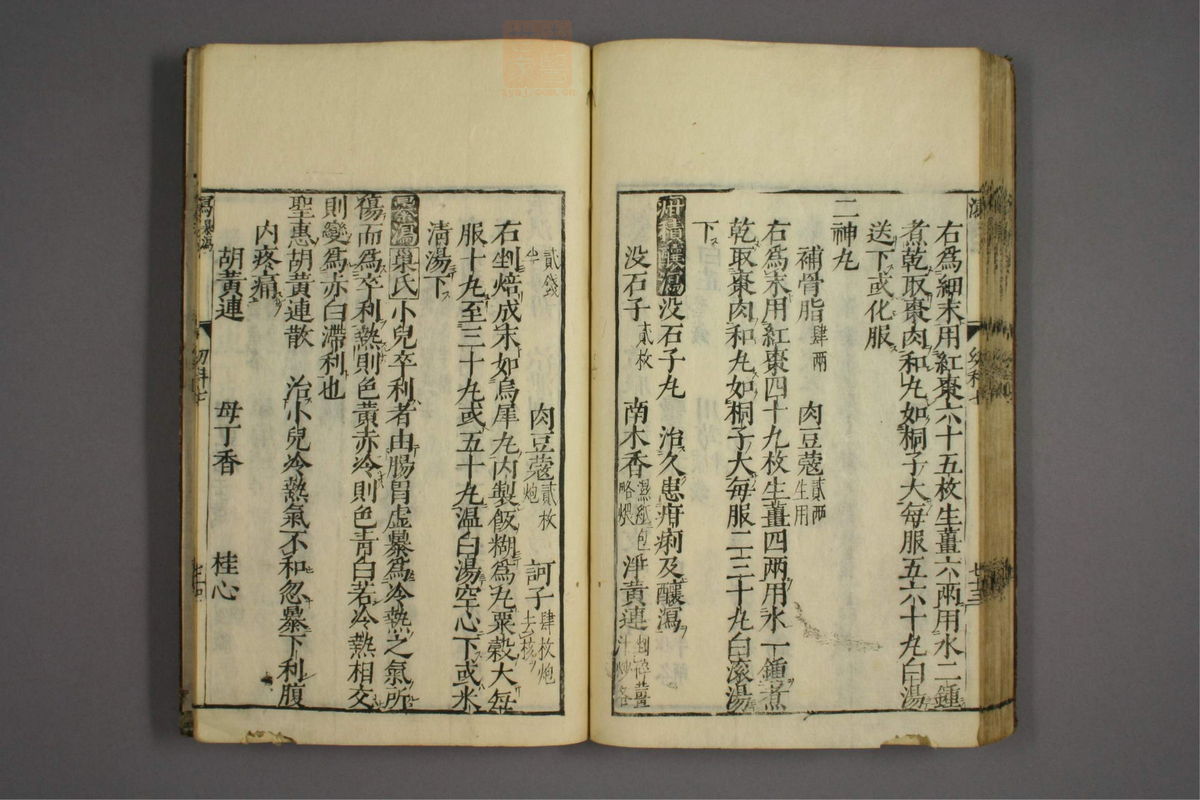 右爲細末用紅棗六十五枚生薑六兩用水二鍾
煮乾取棗肉和丸如桐子大每服五六十丸白湯
送下或化服
二神丸
補骨脂肆兩 肉豆蔻貳兩生用
右爲末用紅棗四十九枚生薑四兩用水一鍾煮
乾取棗肉和丸如桐子大每服二三十丸白滾湯
下
疳積釀瀉 没石子丸 治久患疳痢及釀瀉
没石子貳枚 南木香濕紙包略煨 淨黄連剉碎薑汁炒各
貳錢半 肉豆蔻貳枚炮 訶子肆枚炮去核
右剉焙成末如烏犀丸内製飯糊爲丸粟穀大每
服十丸至三十丸或五十丸温白湯空心下或米
清湯下
暴瀉 巢氏小兒卒利者由腸胃虚暴爲冷熱之氣所
傷而爲卒利熱則色黄赤冷則色青白若冷熱相交
則變爲赤白滯利也
聖惠胡黄連散 治小兒冷熱氣不和忽暴下利腹
内疼痛
胡黄連 母丁香 桂心